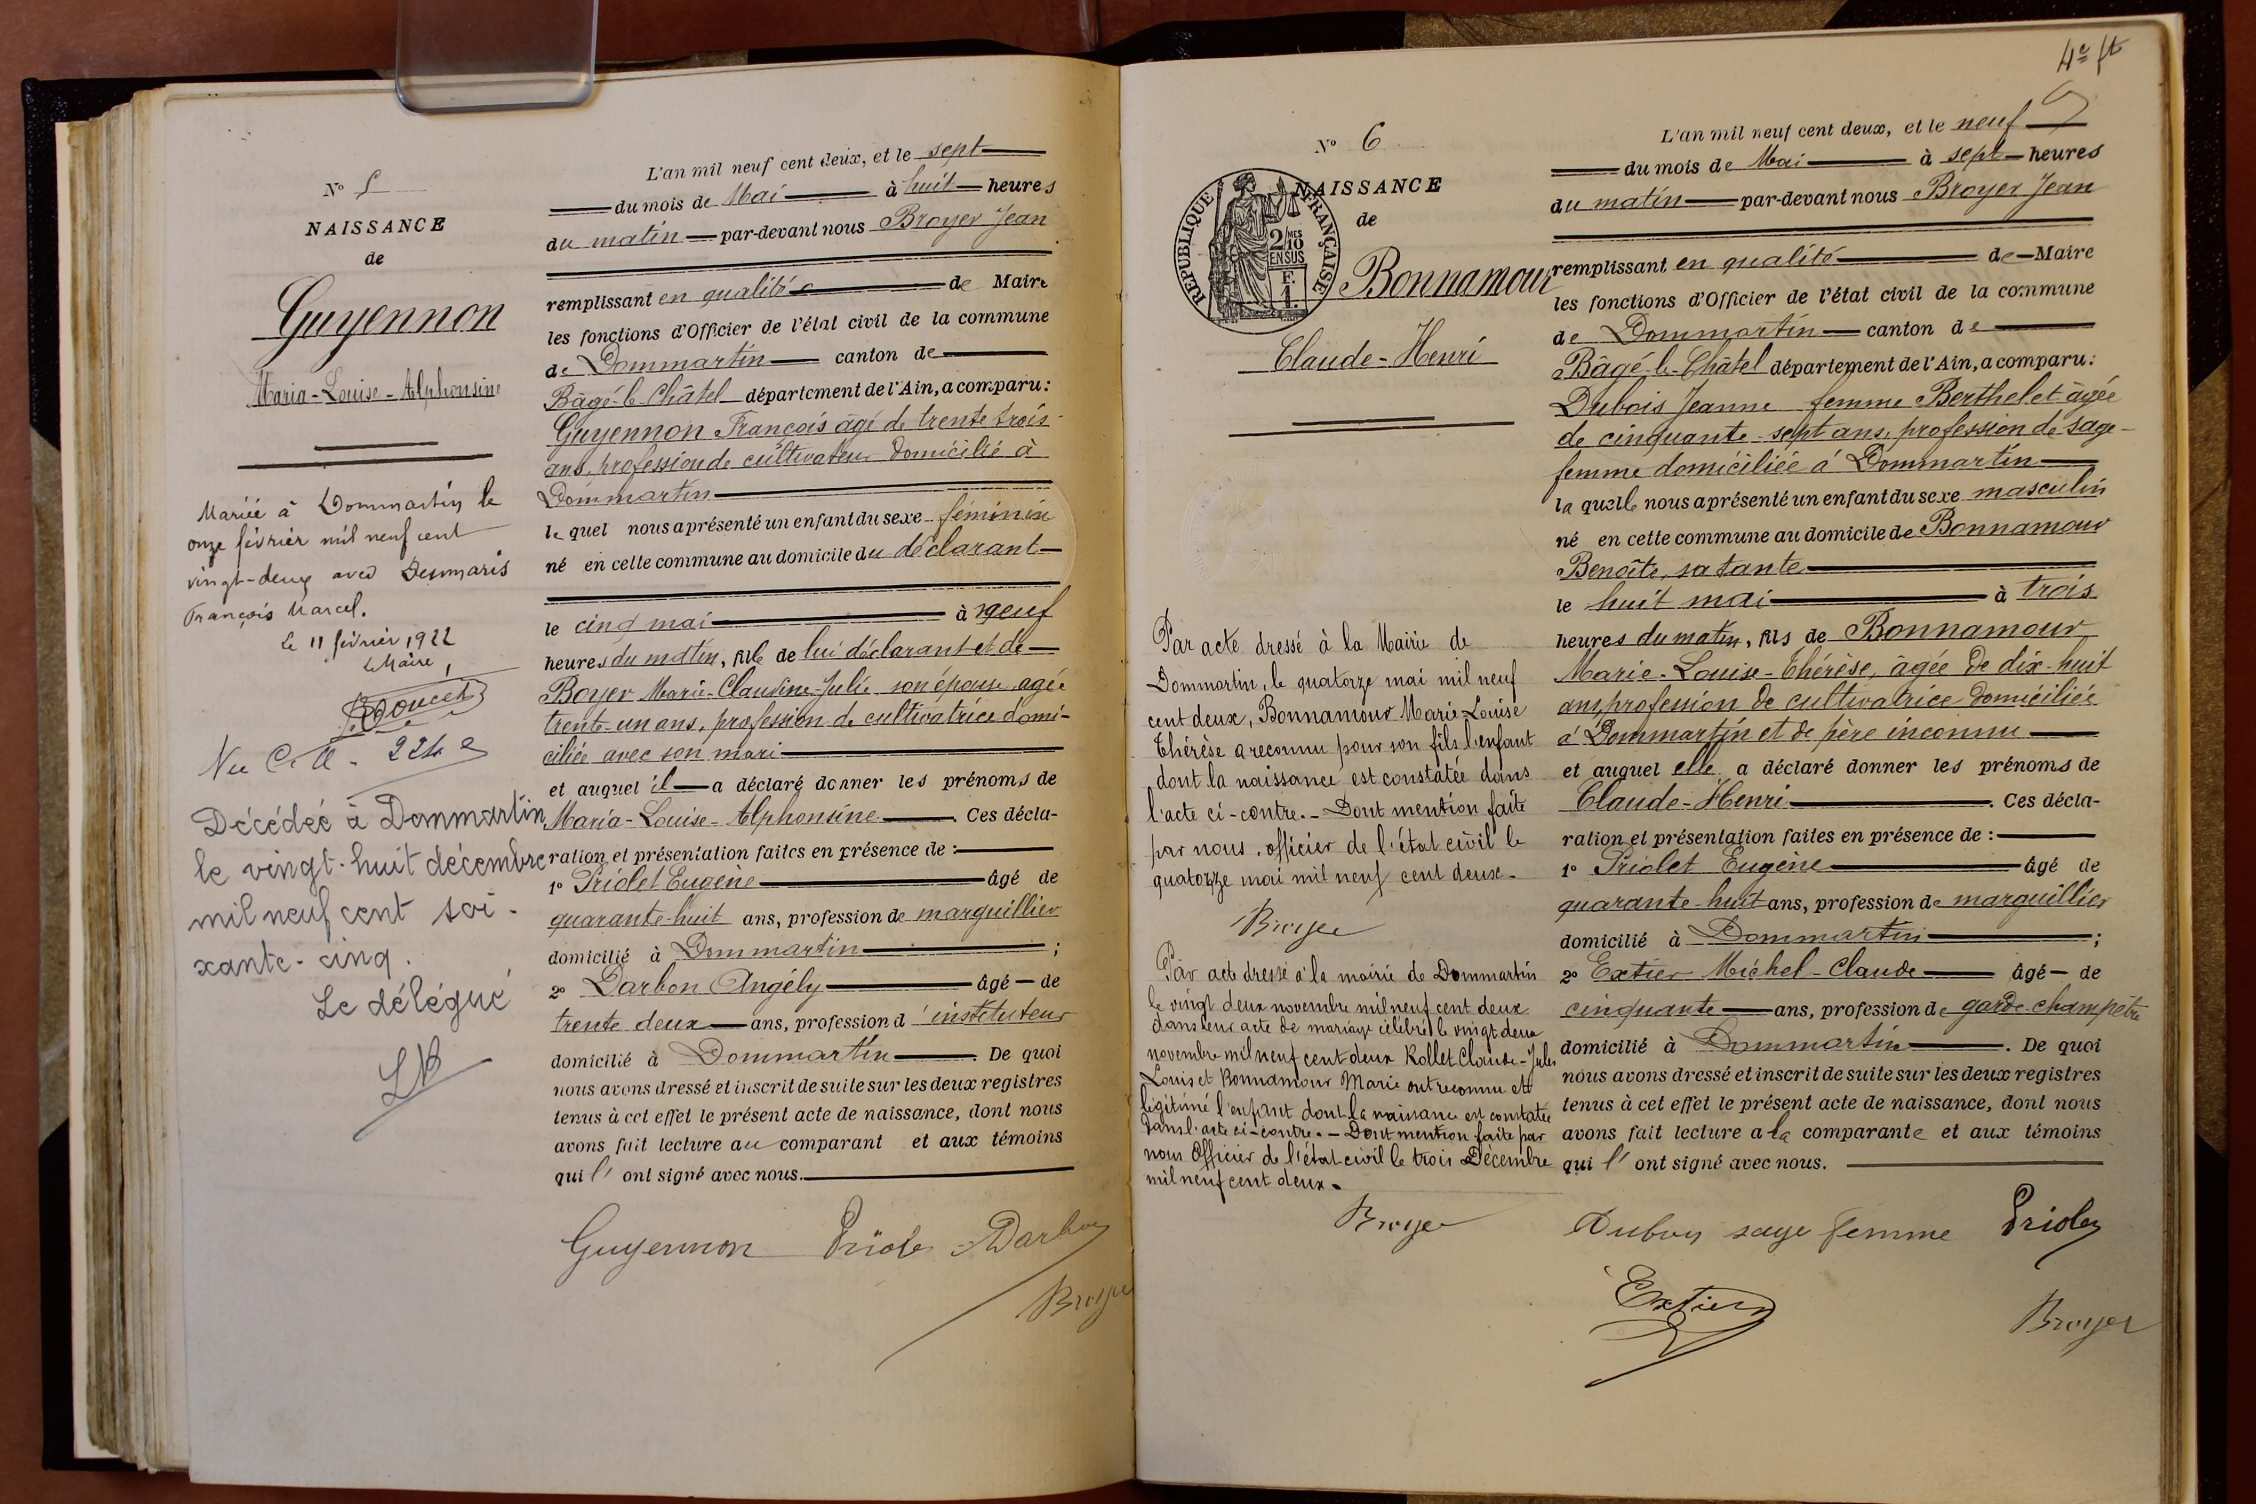 N° 5
NAISSANCE
de
Guyennon
Maria-Louise-Alphonsine
Mariée à Dommartin le
onze février mil neuf cent
vingt-deux avec Desmaris
François Marcel.
Le 11 février 1922
Le Maire,
Décédée à Dommartin
le vingt-huit décembre
mil neuf cent soi-
xante-cinq.
Le délégué
L'an mil neuf cent deux, et le sept
du mois de Mai à huit heures
du matin par-devant nous Broyer Jean
remplissant en qualité de Maire
les fonctions d'Officier de l'état civil de la commune
de Dommartin canton de
Bâgé-le-Châtel département de l'Ain, a comparu:
Guyennon François âgé de trente trois
ans, profession de cultivateur domicilié à
Dommartin
le quel nous a présenté un enfant du sexe féminin
né en cette commune au domicile du déclarant
le cinq mai à neuf
heures du matin, fille de lui déclarant et de
Boyer Marie-Claudine-Julie son épouse agée
trente-un ans, profession de cultivatrice domi-
ciliée avec son mari
et auquel il a déclaré donner les prénoms de
Maria-Louise-Alphonsine. Ces décla-
ration et présentation faites en présence de :
1° Priolet Eugène âgé de
quarante-huit ans, profession de marguillier
domicilié à Dommartin ;
2° Darbon Angély âgé de
trente deux ans, profession d'instituteur
domicilié à Dommartin. De quoi
nous avons dressé et inscrit de suite sur les deux registres
tenus à cet effet le présent acte de naissance, dont nous
avons fait lecture au comparant et aux témoins
qui l' ont signé avec nous.
Guyennon Priolet Darbon
Broyer
4e ft
N° 6
NAISSANCE
de
REPUBLIQUE FRANÇAISE
2 MES 10
EN SUS
F.
1.
Bonnamour
Claude-Henri
Par acte dressé à la Mairie de
Dommartin, le quatorze mai mil neuf
cent deux, Bonnamour Marie Louise
Thérèse a reconnu pour son fils l'enfant
dont la naissance est constatée dans
l'acte ci-contre. - Dont mention faite
par nous, officier de l'état civil le
quatorze mai mil neuf cent deux.
Broyer
Par acte dressé à la mairie de Dommartin
le vingt deux novembre mil neuf cent deux
dans leur acte de mariage célébré le vingt deux
novembre mil neuf cent deux Rollet Claude-Jules
Louis et Bonnamour Marie ont reconnu et
légitimé l'enfant dont la naissance est constatée
dans l'acte ci-contre. - Dont mention faite par
nous Officier de l'état civil le trois Décembre
mil neuf cent deux.
Broyer
L'an mil neuf cent deux, et le neuf
du mois de Mai à sept heures
du matin par-devant nous Broyer Jean
remplissant en qualité de Maire
les fonctions d'Officier de l'état civil de la commune
de Dommartin canton de
Bâgé-le-Châtel département de l'Ain, a comparu:
Dubois Jeanne femme Berthelet âgée
de cinquante-sept ans, profession de sage-
femme domiciliée à Dommartin
la quelle nous a présenté un enfant du sexe masculin
né en cette commune au domicile de Bonnamour
Benoîte, sa tante
le huit mai à trois
heures du matin, fils de Bonnamour
Marie-Louise-Thérèse, âgée de dix-huit
ans, profession de cultivatrice domiciliée
à Dommartin et de père inconnu
et auquel elle a déclaré donner les prénoms de
Claude-Henri. Ces décla-
ration et présentation faites en présence de :
1° Priolet Eugène âgé de
quarante-huit ans, profession de marguillier
domicilié à Dommartin ;
2° Extier Michel-Claude âgé de
cinquante ans, profession de garde-champêtre
domicilié à Dommartin. De quoi
nous avons dressé et inscrit de suite sur les deux registres
tenus à cet effet le présent acte de naissance, dont nous
avons fait lecture a la comparante et aux témoins
qui l' ont signé avec nous.
Dubois sage femme Priolet
Extier
Broyer